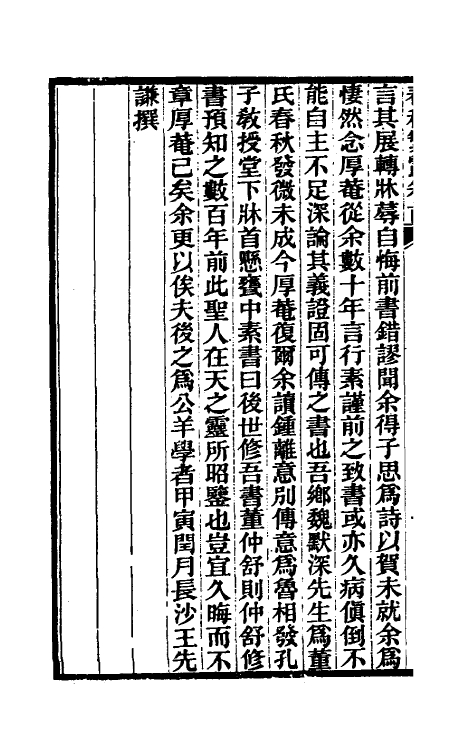 言其展轉牀蓐自悔前書錯謬聞余得子思為詩以賀未就余為
悽然念厚菴從余數十年言行素謹前之致書或亦久病傎倒不
能自主不足深論其義證固可傳之書也吾鄉魏默深先生為董
氏春秋發微未成今厚菴復爾余讀鍾離意別傳意為魯相發孔
子教授堂下牀首懸甕中素書曰後世修吾書董仲舒則仲舒修
書預知之數百年前此聖人在天之靈所昭鑒也豈宜久晦而不
章厚菴已矣余更以俟夫後之為公羊學者甲寅閏月長沙王先
謙撰